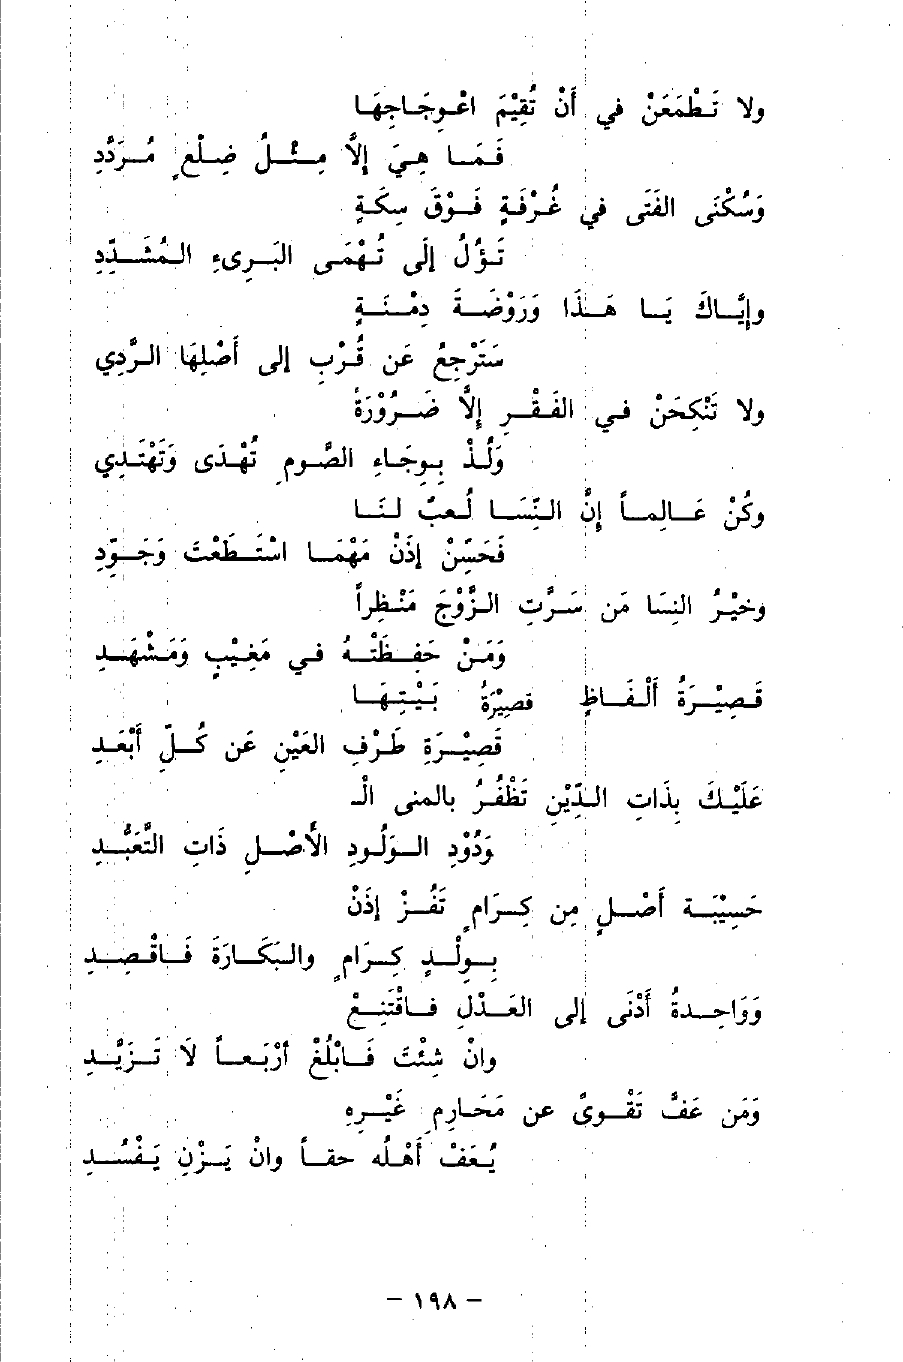 ولا تَطْمَعَنْ في أَنْ تُقِيْمَ اعْوِجَاجِهَا
فَمَا هِيَ إِلاَّ مِثْلُ ضِلْعٍ مُرَدَّدِ
وَسُكْنَى الفَتَى في غُرْفَةٍ فَوْقَ سِكَةٍ
تَؤُلُ إِلَى تُهْمَى البَرِىءِ المُشَدَّدِ
وإِيَّاكَ يَا هَذَا وَرَوْضَةَ دِمْنَةٍ
سَتَرْجِعُ عَن قُرْبٍ إلى أَصْلِهَا الرَّدِي
ولا تَنْكِحَنْ في الفَقْرِ إِلاَّ ضَرُوْرَةً
وَلُذْ بِوِجَاءِ الصَّومِ تُهْدَى وَتَهْتَدِي
وكُنْ عَالِماً إِنَّ النِّسَا لُعبٌ لَنَا
فَحَسِّنْ إذَنْ مَهْمَا اسْتَطَعْتَ وَجَوِّدِ
وخَيْرُ النِسَا مَن سَرَّتِ الزَّوْجَ مَنْظِراً
وَمَنْ حَفِظَتْهُ في مَغِيْبٍ وَمَشْهَدِ
قَصِيْرَةُ أَلْفَاظٍ قصِيْرَةُ بَيْتِهَا
قَصِيْرَةِ طَرْفِ العَيْنِ عَن كُلِّ أَبْعَدِ
عَلَيْكَ بِذَاتِ الدِّيْنِ تَظْفَرُ بالمنى الْـ
وَدُوْدِ الوَلُودِ الأَصْلِ ذَاتِ التَّعَبُّدِ
حَسِيْبَة أَصْلٍ مِن كِرَامٍ تَفُزْ إِذَنْ
بِوِلْدٍ كِرَامٍ والبَكَارَةَ فَاقْصِدِ
وَوَاحِدةُ أَدْنَى إلى العَدْلِ فاقْتَنِعْ
وانْ شِئْتَ فَابْلُغْ أرْبَعاً لاَ تَزَيَّدِ
وَمَن عَفَّ تَقْوىً عن مَحَارِمِ غَيْرِهِ
يُعَفْ أَهْلُه حقاً وانْ يَزْنِ يَفْسُدِ
- ١٩٨ -